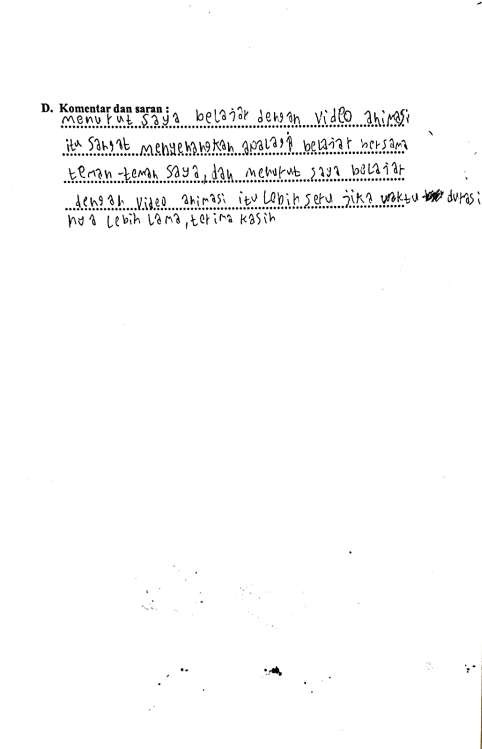 D. Komentar dan saran :
menurut saya belajar dengan video animasi
itu sangat menyenangkan apalagi belajar bersama
teman-teman saya, dan menurut saya belajar
dengan video animasi itu lebih seru jika waktu durasi
nya lebih lama, terima kasih